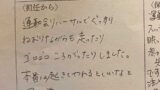 (担任から)
運動会リハーサルでぐっすり
ねおけながらも 走ったり
ゴロゴロ ころがったりしました。
本番も起きてやれるといいなと